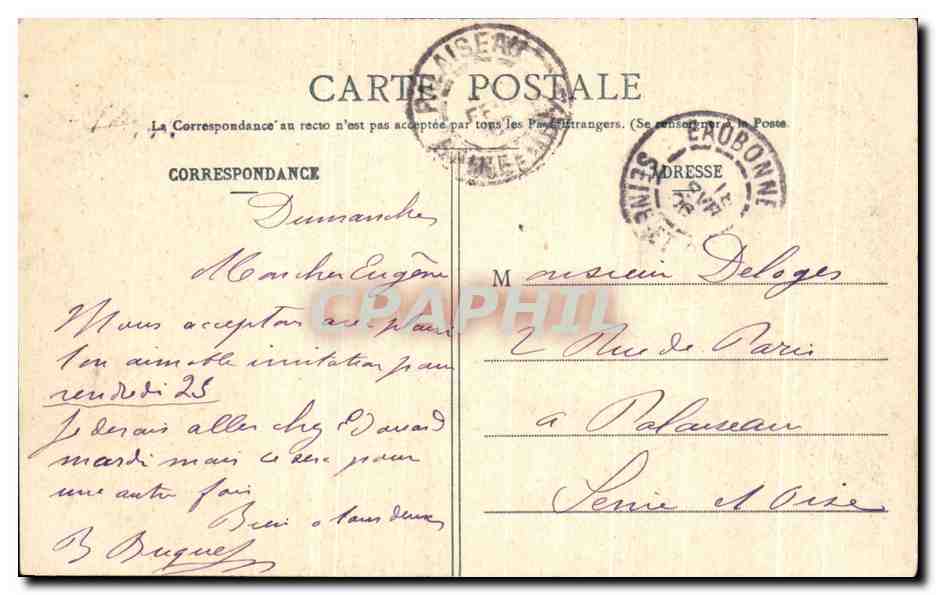 CARTE POSTALE
La Correspondance au recto n'est pas acceptée par tous les Pays Etrangers. (Se renseigner à la Poste
CORRESPONDANCE
ADRESSE
PALAISEAU
EAUBONNE
SEINE-ET
Dimanche
Mon cher Eugène
Nous acceptons avec plaisir
ton aimable invitation pour
vendredi 25
Je devais aller chez Edouard
mardi mais ce sera pour
une autre fois
Bien à tous deux
Monsieur Deloges
2 Rue de Paris
a Palaiseau
Seine et Oise
CPAPHIL